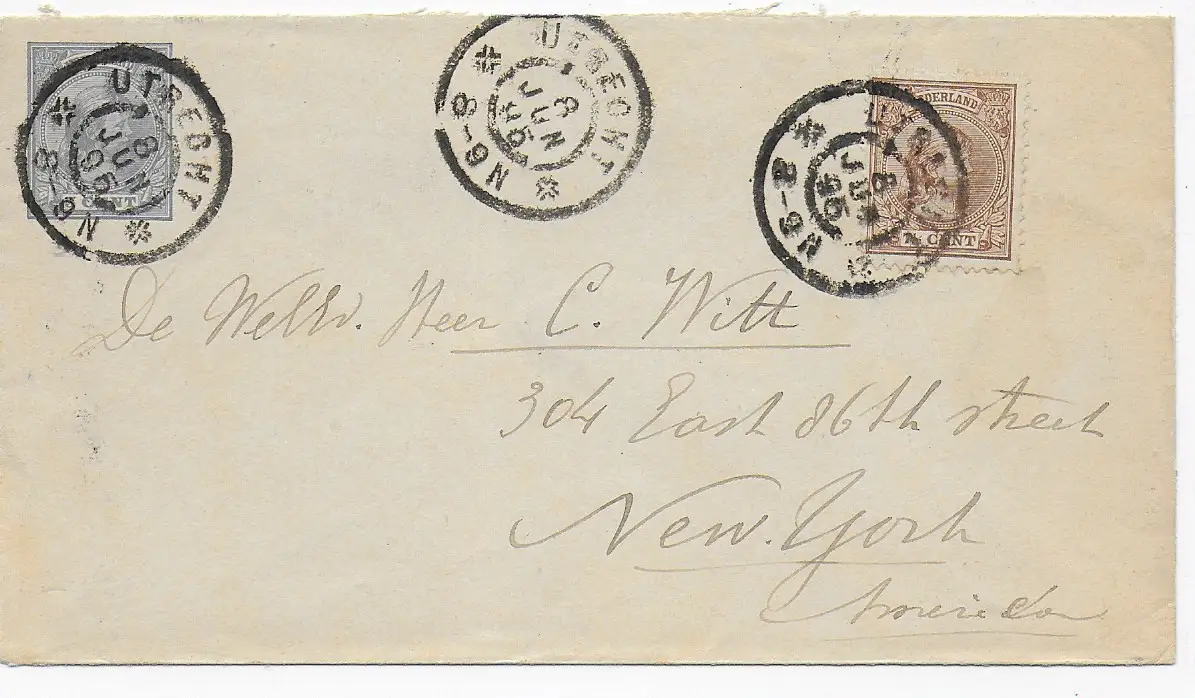 UTRECHT
8 JUN 96
N 6-8
CENT
UTRECHT
8 JUN 96
N 6-8
UTRECHT
8 JUN 96
N 6-8
NEDERLAND
7½ CENT
De WelEd. Heer C. Witt
304 East 86th street
New. York
America